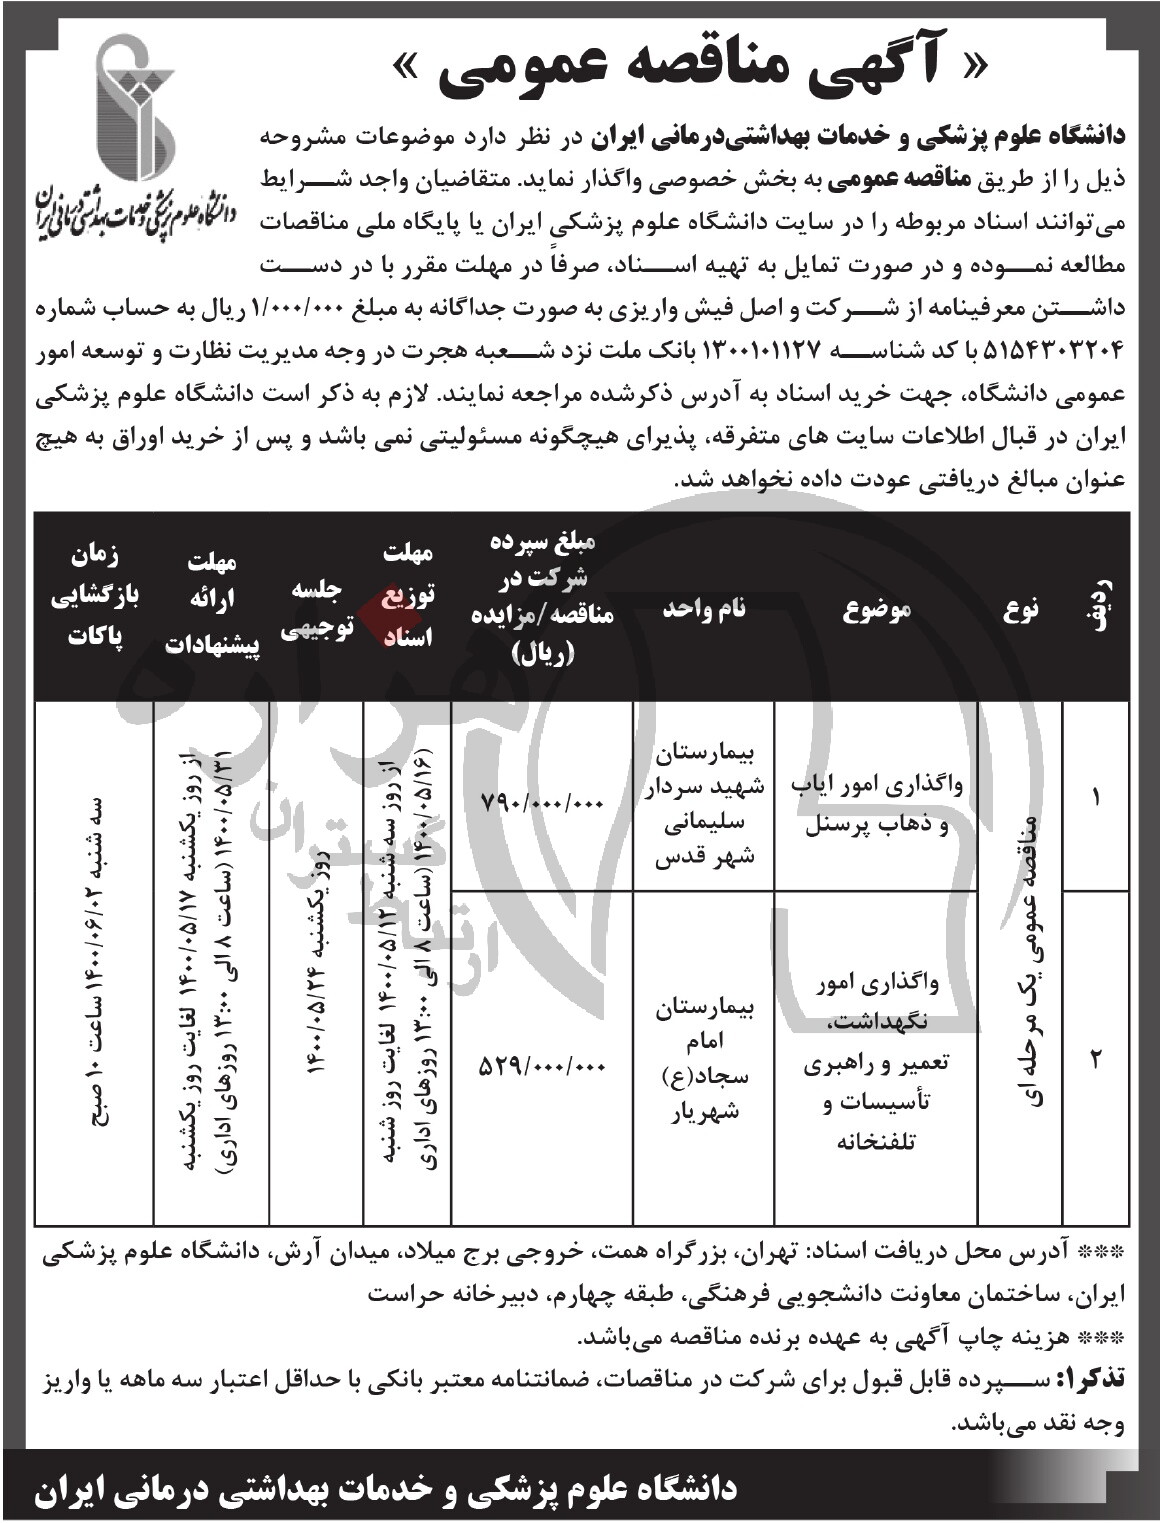 « آگهی مناقصه عمومی »
دانشگاه علوم پزشکی و خدمات بهداشتی درمانی ایران
دانشگاه علوم پزشکی و خدمات بهداشتی‌درمانی ایران در نظر دارد موضوعات مشروحه
ذیل را از طریق مناقصه عمومی به بخش خصوصی واگذار نماید. متقاضیان واجد شرایط
می‌توانند اسناد مربوطه را در سایت دانشگاه علوم پزشکی ایران یا پایگاه ملی مناقصات
مطالعه نموده و در صورت تمایل به تهیه اسناد، صرفاً در مهلت مقرر با در دست
داشتن معرفینامه از شرکت و اصل فیش واریزی به صورت جداگانه به مبلغ ۱/۰۰۰/۰۰۰ ریال به حساب شماره
۵۱۵۴۳۰۳۲۰۴ با کد شناسه ۱۳۰۰۱۰۱۱۲۷ بانک ملت نزد شعبه هجرت در وجه مدیریت نظارت و توسعه امور
عمومی دانشگاه، جهت خرید اسناد به آدرس ذکرشده مراجعه نمایند. لازم به ذکر است دانشگاه علوم پزشکی
ایران در قبال اطلاعات سایت های متفرقه، پذیرای هیچگونه مسئولیتی نمی باشد و پس از خرید اوراق به هیچ
عنوان مبالغ دریافتی عودت داده نخواهد شد.
ردیف
نوع
موضوع
نام واحد
مبلغ سپرده
شرکت در
مناقصه/مزایده
(ریال)
مهلت
توزیع
اسناد
جلسه
توجیهی
مهلت
ارائه
پیشنهادات
زمان
بازگشایی
پاکات
۱
مناقصه عمومی یک مرحله ای
واگذاری امور ایاب
و ذهاب پرسنل
بیمارستان
شهید سردار
سلیمانی
شهر قدس
۷۹۰/۰۰۰/۰۰۰
از روز سه شنبه ۱۴۰۰/۰۵/۱۲ لغایت روز شنبه
۱۴۰۰/۰۵/۱۶) (ساعت ۸ الی ۱۳:۰۰ روزهای اداری
روز یکشنبه ۱۴۰۰/۰۵/۲۴
از روز یکشنبه ۱۴۰۰/۰۵/۱۷ لغایت روز یکشنبه
۱۴۰۰/۰۵/۳۱ (ساعت ۸ الی ۱۳:۰۰ روزهای اداری)
سه شنبه ۱۴۰۰/۰۶/۰۲ ساعت ۱۰ صبح
۲
واگذاری امور
نگهداشت،
تعمیر و راهبری
تأسیسات و
تلفنخانه
بیمارستان
امام
سجاد(ع)
شهریار
۵۲۹/۰۰۰/۰۰۰
هزاره
گستران
ارتباط
*** آدرس محل دریافت اسناد: تهران، بزرگراه همت، خروجی برج میلاد، میدان آرش، دانشگاه علوم پزشکی
ایران، ساختمان معاونت دانشجویی فرهنگی، طبقه چهارم، دبیرخانه حراست
*** هزینه چاپ آگهی به عهده برنده مناقصه می‌باشد.
تذکر۱: سپرده قابل قبول برای شرکت در مناقصات، ضمانتنامه معتبر بانکی با حداقل اعتبار سه ماهه یا واریز
وجه نقد می‌باشد.
دانشگاه علوم پزشکی و خدمات بهداشتی درمانی ایران